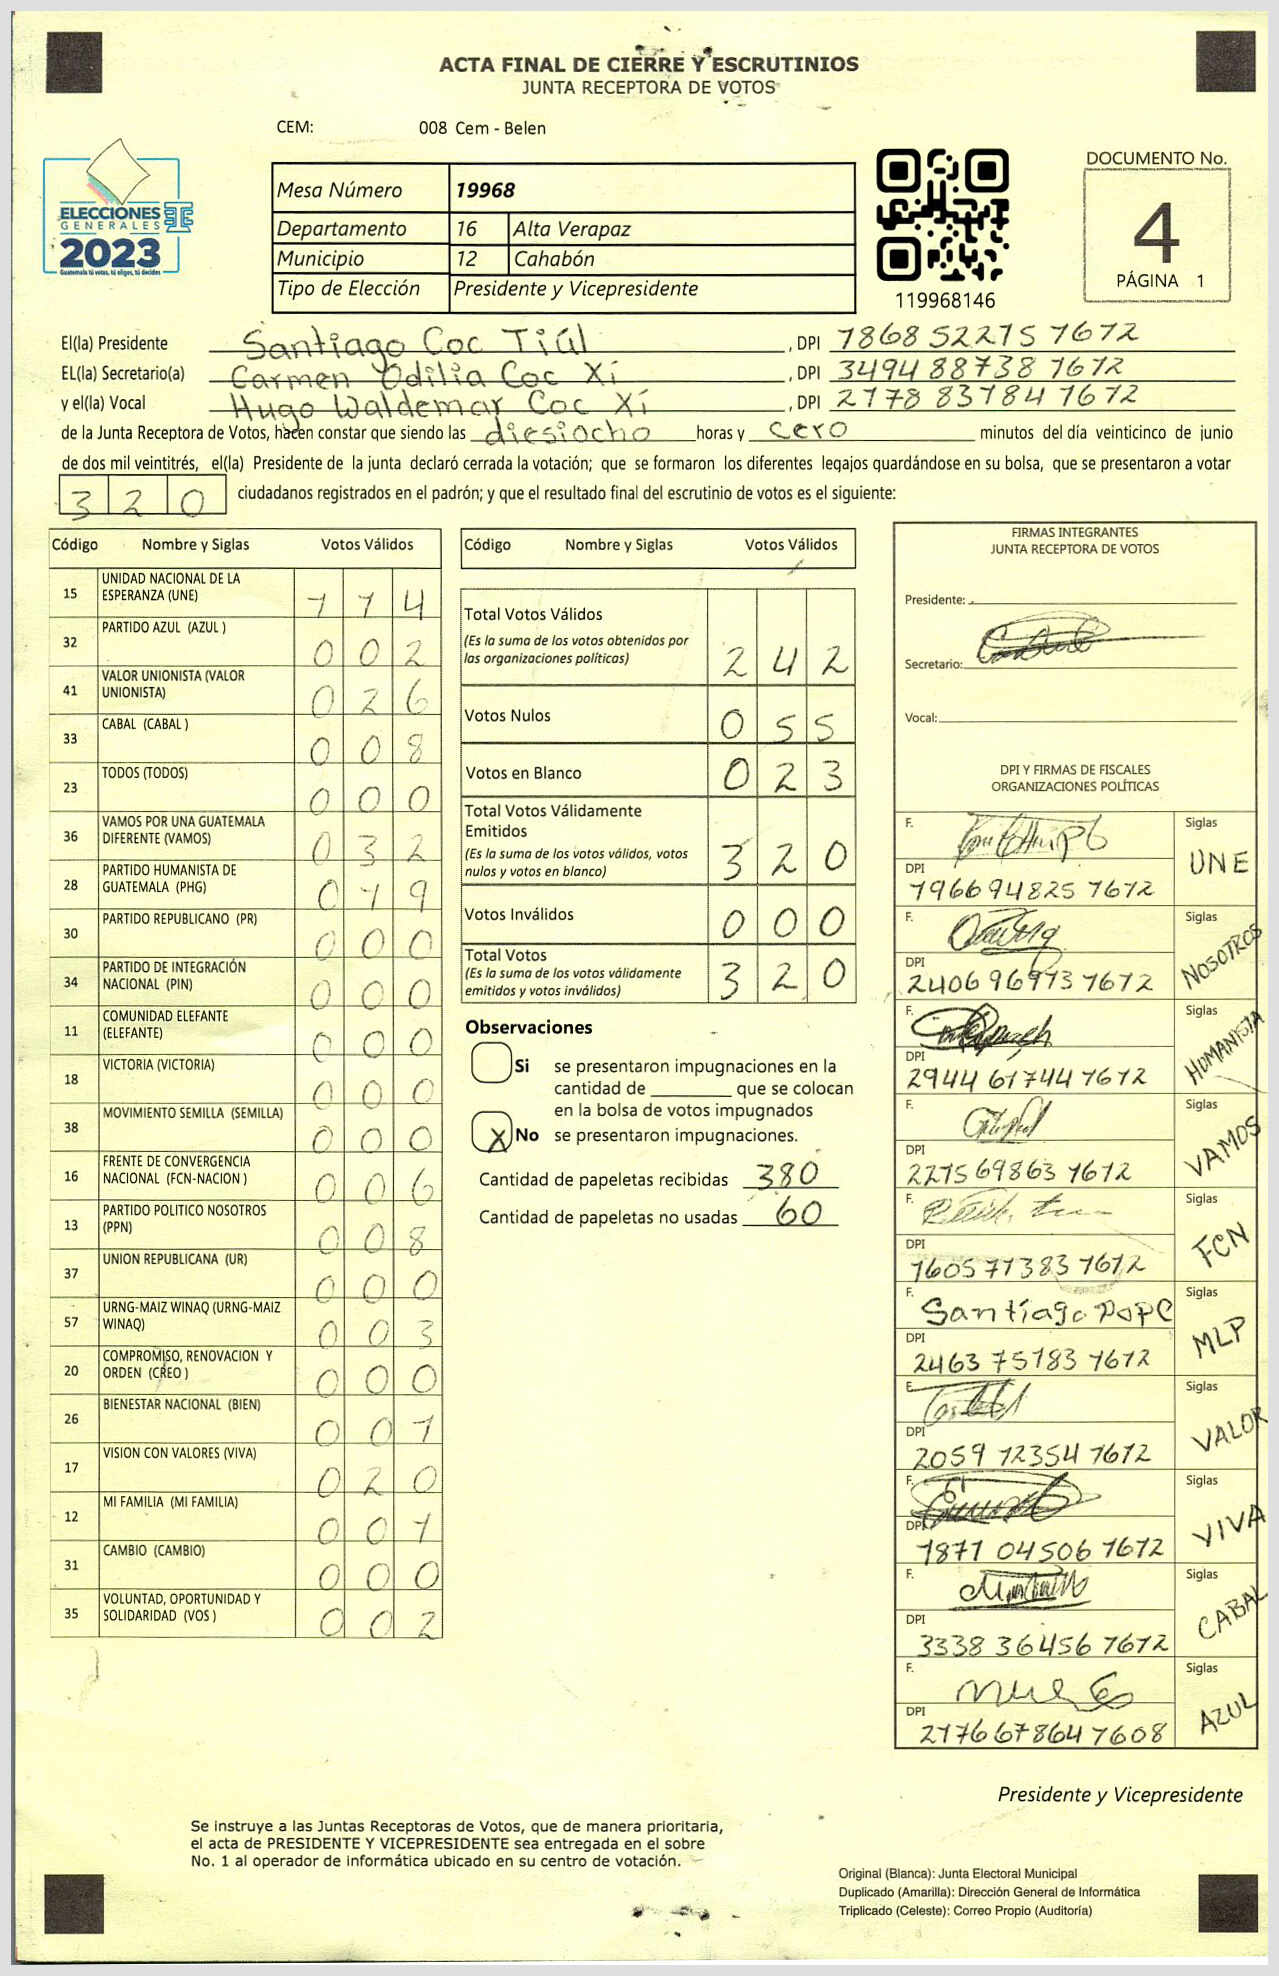 ACTA FINAL DE CIERRE Y ESCRUTINIOS
JUNTA RECEPTORA DE VOTOS
CEM: 008 Cem - Belen
ELECCIONES
GENERALES
2023
Guatemala tú votas, tú eliges, tú decides
Mesa Número 19968
Departamento 16 Alta Verapaz
Municipio 12 Cahabón
Tipo de Elección Presidente y Vicepresidente
119968146
DOCUMENTO No.
4
PÁGINA 1
El(la) Presidente Santiago Coc Tiúl , DPI 1868 52215 1612
EL(la) Secretario(a) Carmen Odilia Coc Xí , DPI 3494 88738 1612
y el(la) Vocal Hugo Waldemar Coc Xí , DPI 2178 83184 1612
de la Junta Receptora de Votos, hacen constar que siendo las diesiocho horas y cero minutos del día veinticinco de junio
de dos mil veintitrés, el(la) Presidente de la junta declaró cerrada la votación; que se formaron los diferentes legajos quardándose en su bolsa, que se presentaron a votar
320 ciudadanos registrados en el padrón; y que el resultado final del escrutinio de votos es el siguiente:
Código Nombre y Siglas Votos Válidos
15 UNIDAD NACIONAL DE LA ESPERANZA (UNE) 114
32 PARTIDO AZUL (AZUL ) 002
41 VALOR UNIONISTA (VALOR UNIONISTA) 026
33 CABAL (CABAL ) 008
23 TODOS (TODOS) 000
36 VAMOS POR UNA GUATEMALA DIFERENTE (VAMOS) 032
28 PARTIDO HUMANISTA DE GUATEMALA (PHG) 019
30 PARTIDO REPUBLICANO (PR) 000
34 PARTIDO DE INTEGRACIÓN NACIONAL (PIN) 000
11 COMUNIDAD ELEFANTE (ELEFANTE) 000
18 VICTORIA (VICTORIA) 000
38 MOVIMIENTO SEMILLA (SEMILLA) 000
16 FRENTE DE CONVERGENCIA NACIONAL (FCN-NACION ) 006
13 PARTIDO POLITICO NOSOTROS (PPN) 008
37 UNION REPUBLICANA (UR) 000
57 URNG-MAIZ WINAQ (URNG-MAIZ WINAQ) 003
20 COMPROMISO, RENOVACION Y ORDEN (CREO ) 000
26 BIENESTAR NACIONAL (BIEN) 001
17 VISION CON VALORES (VIVA) 020
12 MI FAMILIA (MI FAMILIA) 001
31 CAMBIO (CAMBIO) 000
35 VOLUNTAD, OPORTUNIDAD Y SOLIDARIDAD (VOS ) 002
Código Nombre y Siglas Votos Válidos
Total Votos Válidos
(Es la suma de los votos obtenidos por
las organizaciones políticas) 242
Votos Nulos 055
Votos en Blanco 023
Total Votos Válidamente
Emitidos
(Es la suma de los votos válidos, votos
nulos y votos en blanco) 320
Votos Inválidos 000
Total Votos
(Es la suma de los votos válidamente
emitidos y votos inválidos) 320
Observaciones
Si se presentaron impugnaciones en la
cantidad de ________ que se colocan
en la bolsa de votos impugnados
X No se presentaron impugnaciones.
Cantidad de papeletas recibidas 380
Cantidad de papeletas no usadas 60
FIRMAS INTEGRANTES
JUNTA RECEPTORA DE VOTOS
Presidente:
Secretario:
Vocal:
DPI Y FIRMAS DE FISCALES
ORGANIZACIONES POLÍTICAS
F. Siglas
DPI UNE
1966 94825 1612
F. Siglas
DPI NOSOTROS
2406 96913 1612
F. Siglas
DPI HUMANISTA
2944 61744 1612
F. Siglas
DPI VAMOS
2215 69863 1612
F. Siglas
DPI FCN
1605 71383 1612
F. Santiago PoPC Siglas
DPI MLP
2463 75183 1612
F. Siglas
DPI VALOR
2059 12354 1612
F. Siglas
DPI VIVA
1871 04506 1612
F. Siglas
DPI CABAL
3338 36456 1612
F. Siglas
DPI AZUL
2176 67864 1608
Presidente y Vicepresidente
Se instruye a las Juntas Receptoras de Votos, que de manera prioritaria,
el acta de PRESIDENTE Y VICEPRESIDENTE sea entregada en el sobre
No. 1 al operador de informática ubicado en su centro de votación.
Original (Blanca): Junta Electoral Municipal
Duplicado (Amarilla): Dirección General de Informática
Triplicado (Celeste): Correo Propio (Auditoría)